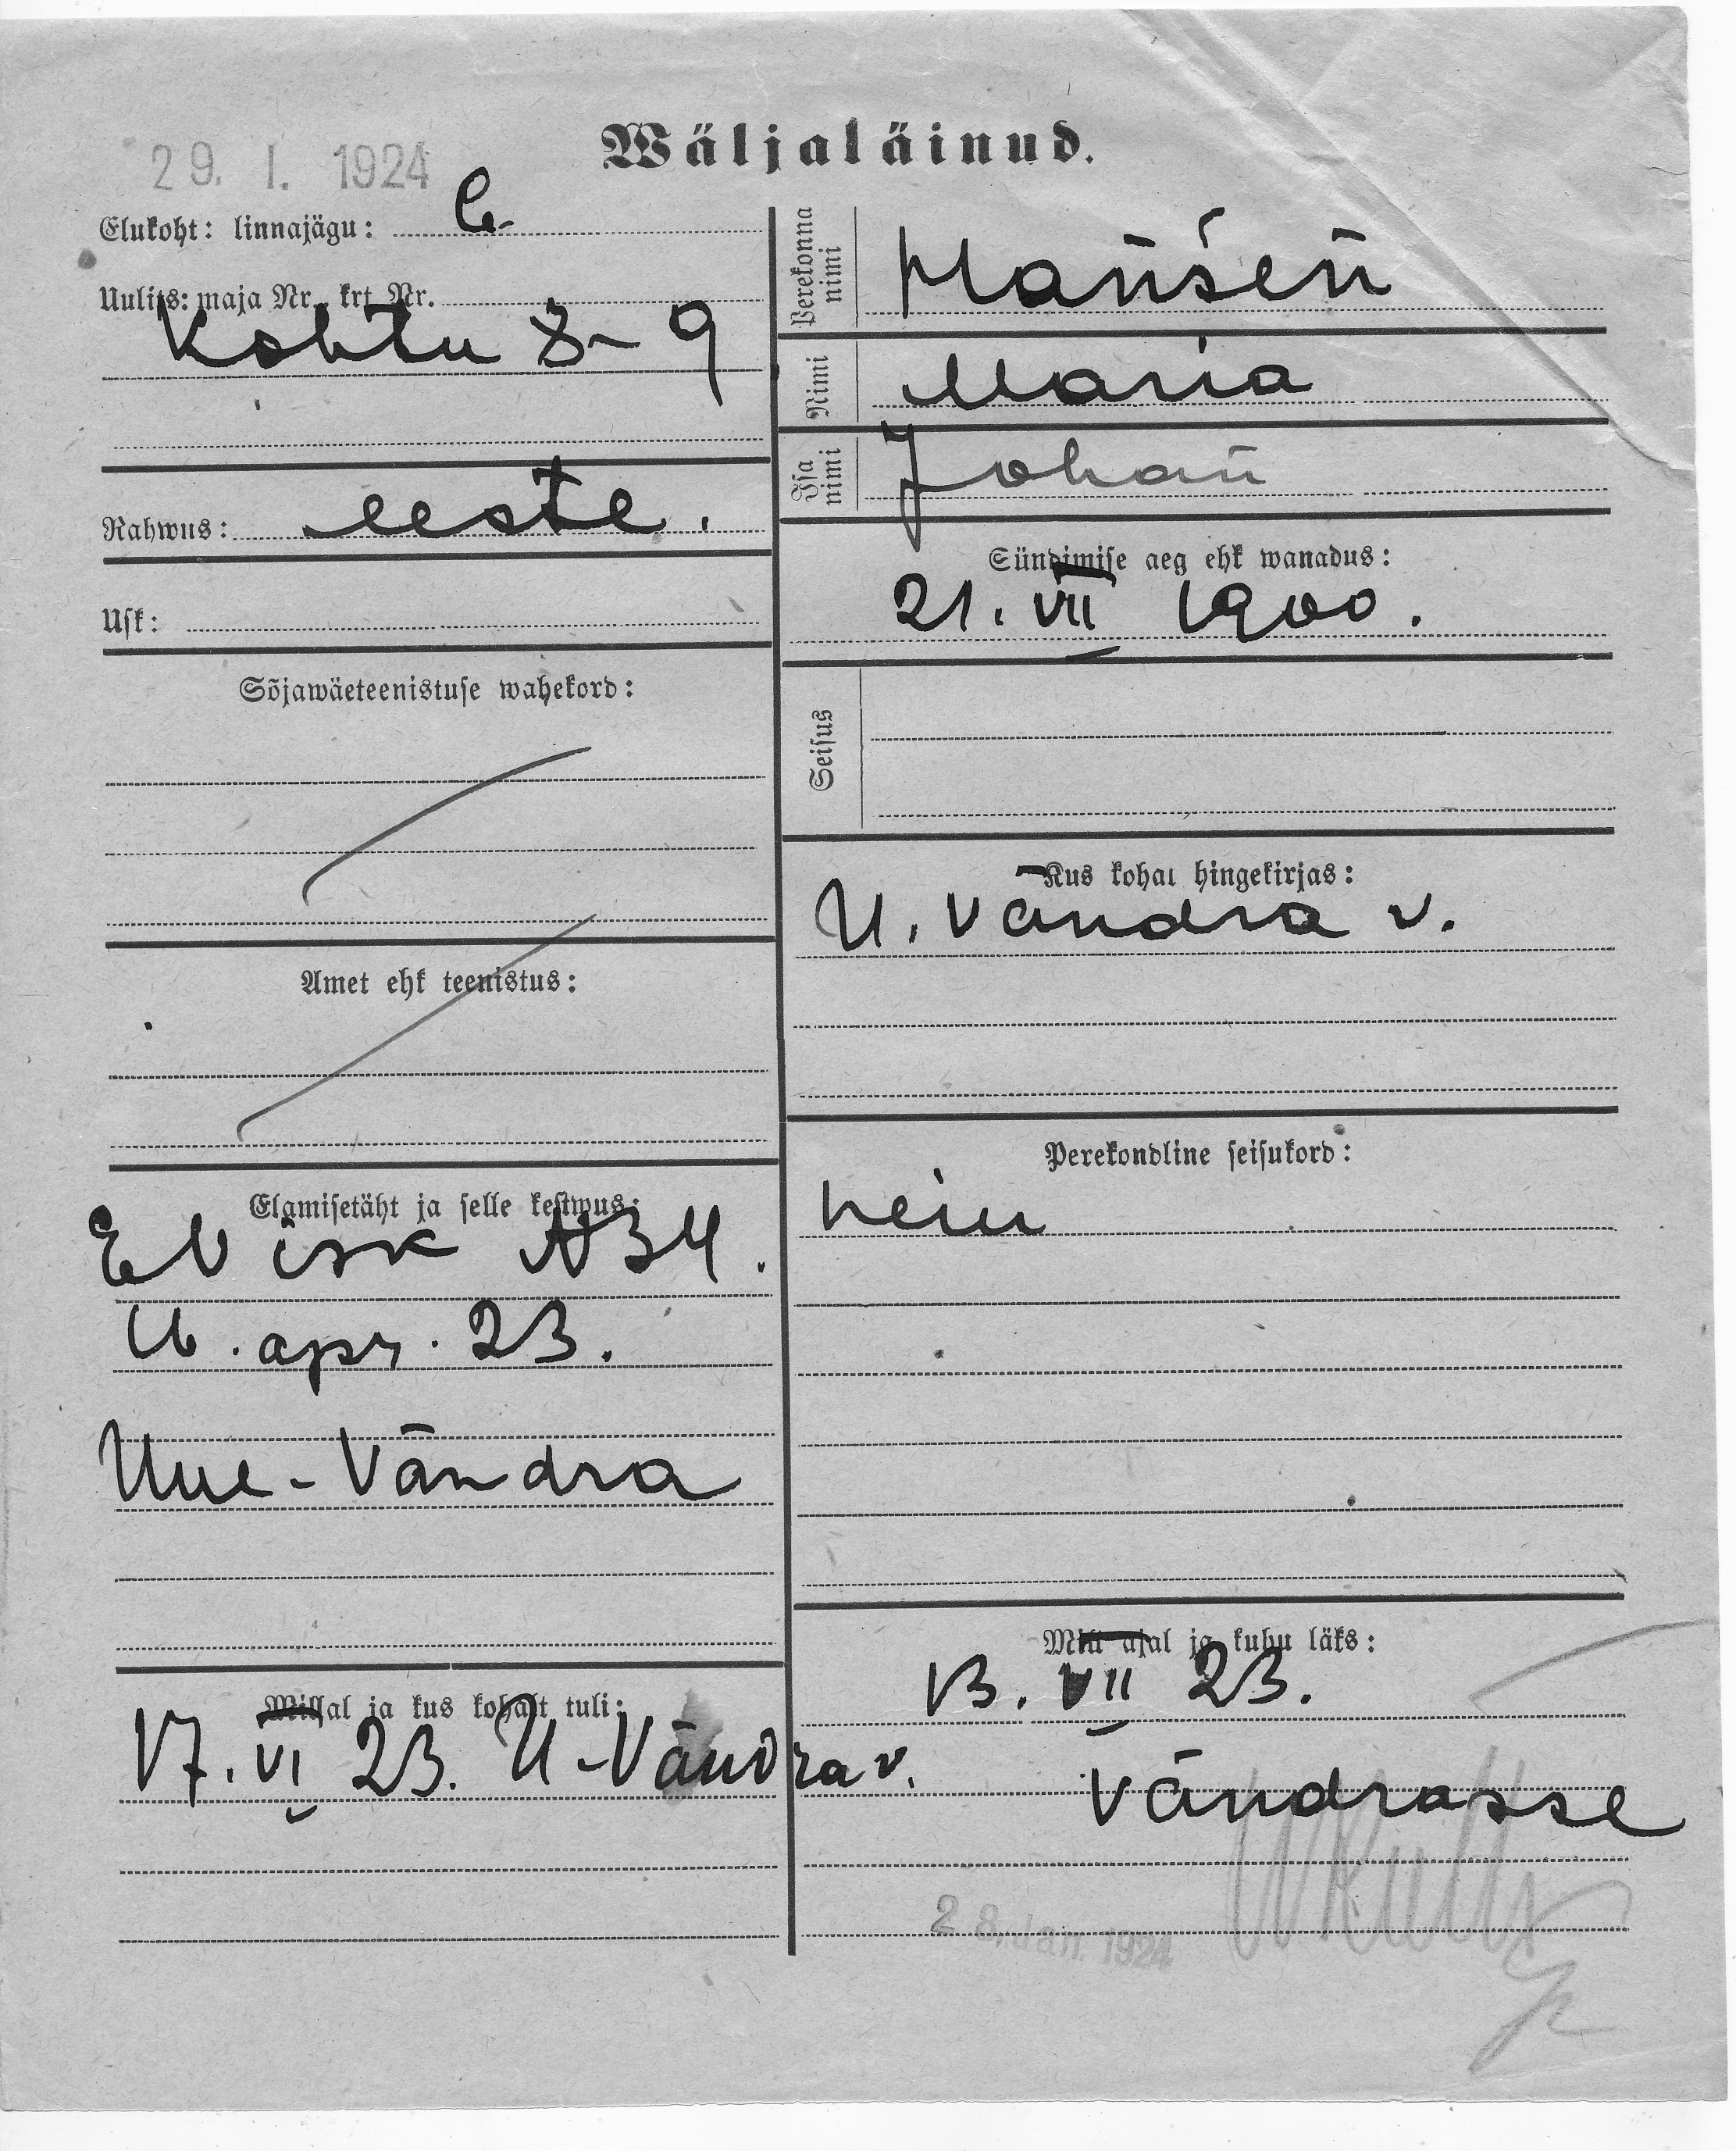 Wäljaläinud.
29. I. 1924
Elukoht: linnajägu:
Uulits: maja Nr. krt Nr.
Kohtu 8-9
Rahwus: eeste.
Usk:
Sõjawäeteenistuse wahekord:
Amet ehk teenistus:
Elamisetäht ja selle kestwus:
EV isk N34.
16. apr. 23.
Uue-Vändra
Millal ja kus kohalt tuli:
17. VI 23. U-Vändra v.
Perekonna nimi
Hansen
Nimi
Maria
Isa nimi
Johan
Sündimise aeg ehk wanadus:
21. VII 1900.
Seisus
Kus kohal hingekirjas:
U. Vändra v.
Perekondline seisukord:
neiu
Mill ajal ja kuhu läks:
13. VII 23.
Vändrasse
28. Jan. 1924